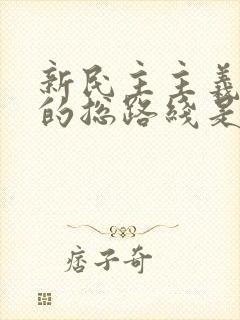 新民主主義
的總路綫是
痞子奇